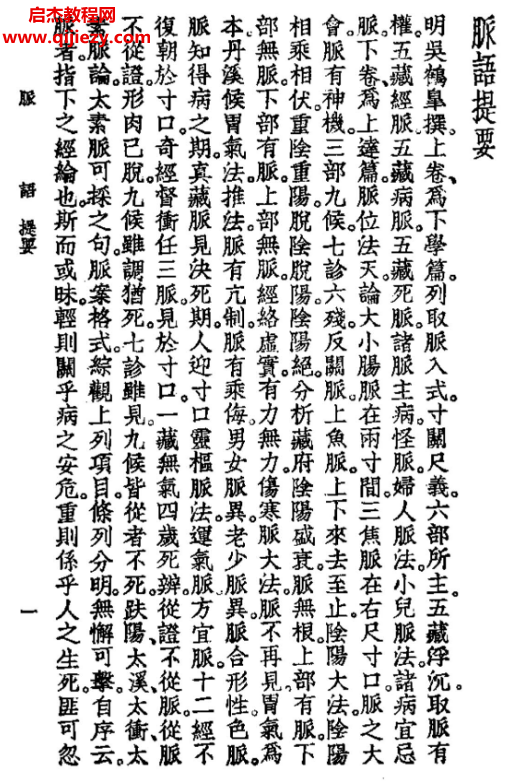 脈語提要
明吳鶴皋撰。上卷、爲下學篇。列取脈入式。寸關尺義。六部所主。五藏浮沉。取脈有
權。五藏經脈。五藏病脈。五藏死脈。諸脈主病。怪脈。婦人脈法。小兒脈法。諸病宜忌
脈。下卷、爲上達篇。脈位法天。論大小腸脈在兩寸間。三焦脈在右尺寸口。脈之大
會。脈有神機。三部九候。七診六殘。反關脈。上魚脈。上下來去至止。陰陽大法。陰陽
相乘相伏。重陰重陽。脫陰脫陽。陰陽絕。分析藏府陰陽盛衰。脈無根。上部有脈。下
部無脈。下部有脈。上部無脈。經絡虛實。有力無力。傷寒脈大法。脈不再見。胃氣爲
本。丹溪候胃氣法。推法。脈有亢制。脈有乘侮。男女脈異。老少脈異。脈合形性色脈。
脈知得病之期。真藏脈見決死期。人迎寸口。靈樞脈法。運氣脈。方宜脈。十二經不
復朝於寸口。奇經督衝任三脈。見於寸口。一藏無氣四歲死辨。從證不從脈。從脈
不從證。形肉已脫。九候雖調猶死。七診雖見。九候皆從者不死。趺陽、太溪、太衝、太
素脈論。太素脈可採之句。脈案格式。綜觀上列項目。條列分明。無懈可擊。自序云。
脈者。指下之經綸也。斯而或昧。輕則關乎病之安危。重則係乎人之生死。匪可忽
脈 語 提要 一
启杰教程网
www.qhjiezy.com